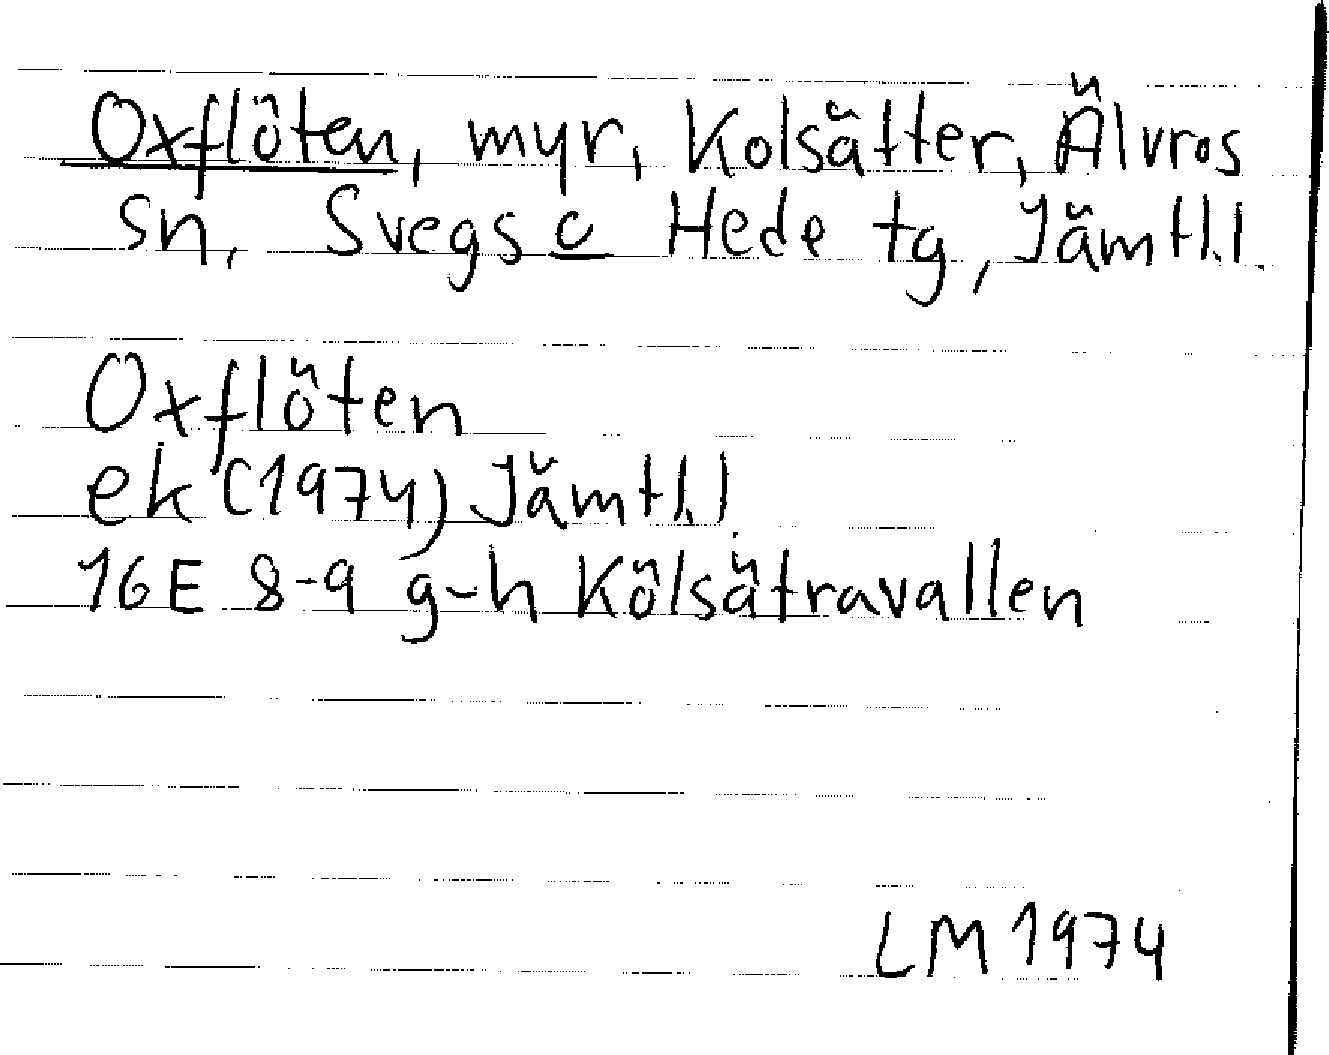 Oxflöten, myr, Kolsätter, Älvros
sn, Svegs o Hede tg, Jämtl.l.
Oxflöten
ek (1974) Jämtl.l.
16E 8-9 g-h Kölsätravallen
LM 1974